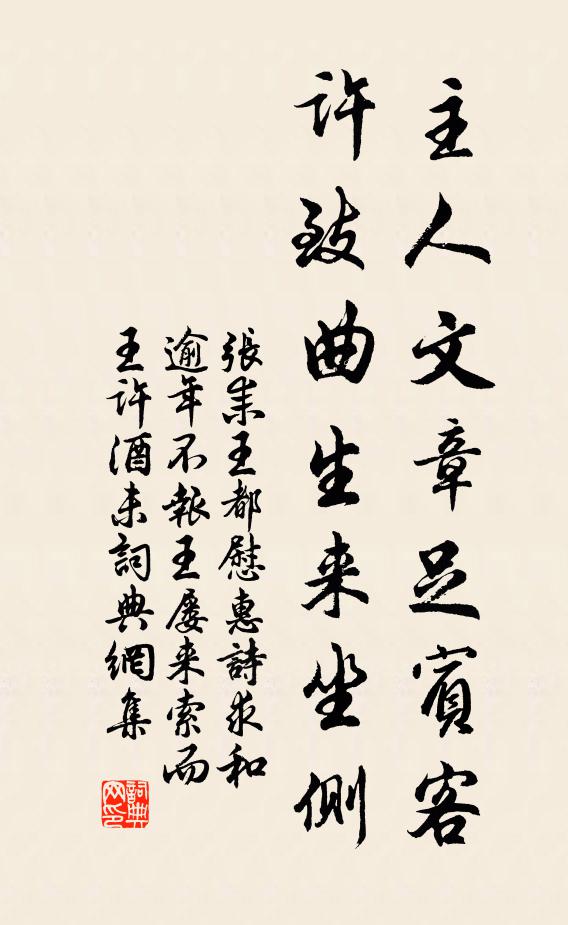 主人文章足賓客
許致曲生来坐側
張耒王都慰惠詩求和
逾年不報王屡来索而
王許酒未詞典網集
詞典
网印